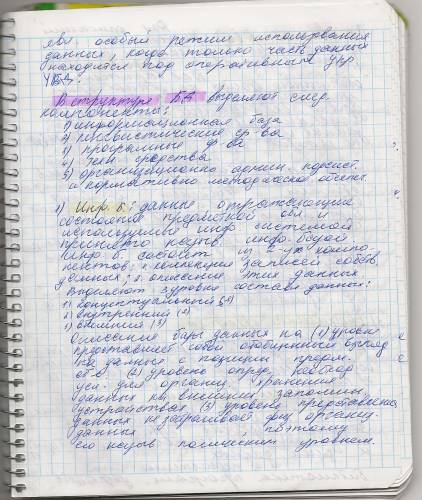 явл особый режим использования
данных, когда только часть данных
находится под оперативным упр
УБД.
В структуре БД выделяют след.
компоненты:
1) информационная база
2) лингвистические ср ва
3) програмные ср ва
4) техн средства
5) организационно админ. подсист.
и нормативно методическое обеспеч.
1) Инф. Б.: данные отражающие
состояние предметной обл и
используемые инф системой
принято назыв. инф. базой
Инф. б. состоит из 2-х компо-
нентов: коллекция записей собств
данных; описание этих данных
Выделяют 3 уровня состава данных:
1) концептуальный
2) внутренний (2)
3) внешний (3)
Описание базы данных на (1) уровне
представляет собой обобщенный взгляд
на данные с позиции предм.
обл. (2) уровень опред. набор
для органи. хранения
данных на внешних запомин.
устройствах (3) уровень представления
данных не затрагивает физ органи.
данных поэтому
его назыв логическим уровнем.